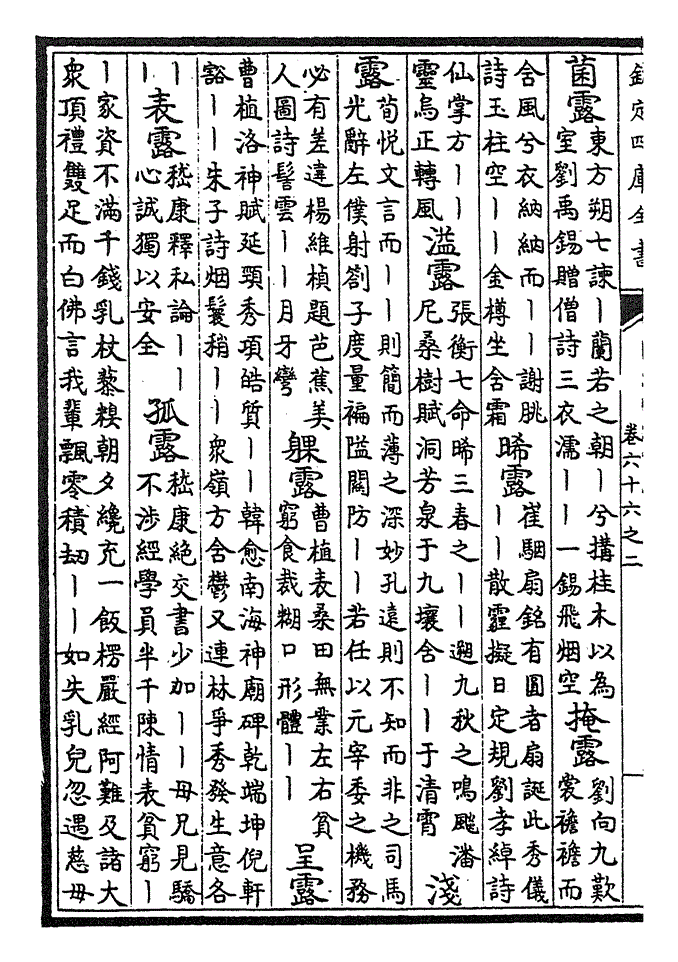 欽定四庫全書
卷六十六之二
菌露
東方朔七諫丨蘭若之朝丨兮搆桂木以為
室劉禹錫贈僧詩三衣濡丨丨一錫飛烟空
掩露
劉向九歎
裳襜襜而
含風兮衣納納而丨丨謝朓
詩玉柱空丨丨金樽坐含霜
晞露
崔駰扇銘有圓者扇誕此秀儀
丨丨散霾擬日定規劉孝綽詩
仙掌方丨丨
靈烏正轉風
溢露
張衡七命晞三春之丨丨遡九秋之鳴飈潘
尼桑樹賦洞芳泉于九壤含丨丨于清霄
淺
露
荀悅文言而丨丨則簡而薄之深妙孔遠則不知而非之司馬
光辭左僕射劄子度量褊隘關防丨丨若任以元宰委之機務
必有差違楊維楨題芭蕉美
人圖詩髻雲丨丨月牙彎
躶露
曹植表桑田無業左右貧
窮食裁糊口形體丨丨
呈露
曹植洛神賦延頸秀項皓質丨丨韓愈南海神廟碑乾端坤倪軒
豁丨丨朱子詩烟鬟稍丨丨衆嶺方含鬱又連林爭秀發生意各
丨丨
表露
嵇康釋私論丨丨
心誠獨以安全
孤露
嵇康絶交書少加丨丨母兄見驕
不涉經學員半千陳情表貧窮丨
丨家資不滿千錢乳杖藜糗朝夕纔充一飯楞嚴經阿難及諸大
衆頂禮雙足而白佛言我輩飄零積劫丨丨如失乳兒忽遇慈母